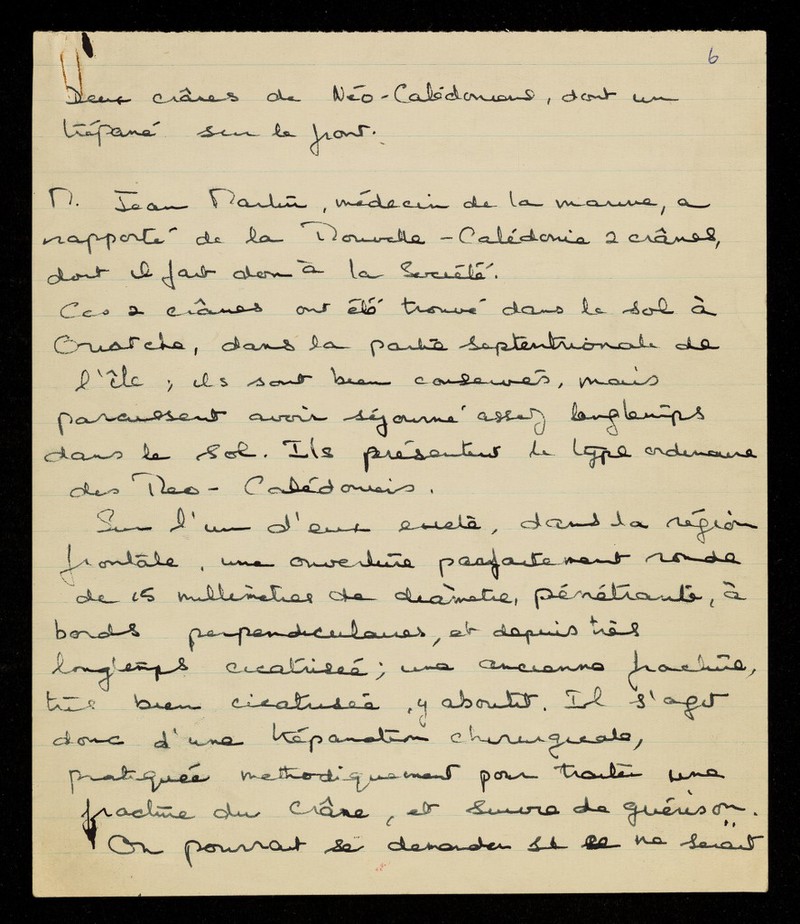 6
Deux crânes de Néo-Calédoniens, dont un
trépané sur le front.
M. Jean Martin, médecin de la marine, a
rapporté de la Nouvelle-Calédonie 2 crânes,
dont il fait don à la Société.
Ces 2 crânes ont été trouvé dans le sol à
dans la partie septentrionale de
l'île ; ils sont bien conservés, mais
paraissent avoir séjourné assez longtemps
dans le sol. Ils présentent le type ordinaire
des Neo-Calédoniens.
Sur l'un d'eux existe, dans la région
frontale, une ouverture parfaitement ronde
de 15 millimètres de diamètre, pénétrante, à
bords perpendiculaires, et depuis très
longtemps cicatrisée ; une ancienne fracture,
très bien cicatrisée, y aboutit. Il s'agit
donc d'une trépanation chirurgicale,
pratiquée methodiquement pour traiter une
fracture du crâne, et suivie de guérison.
On pourrait se demander si ce ne serait